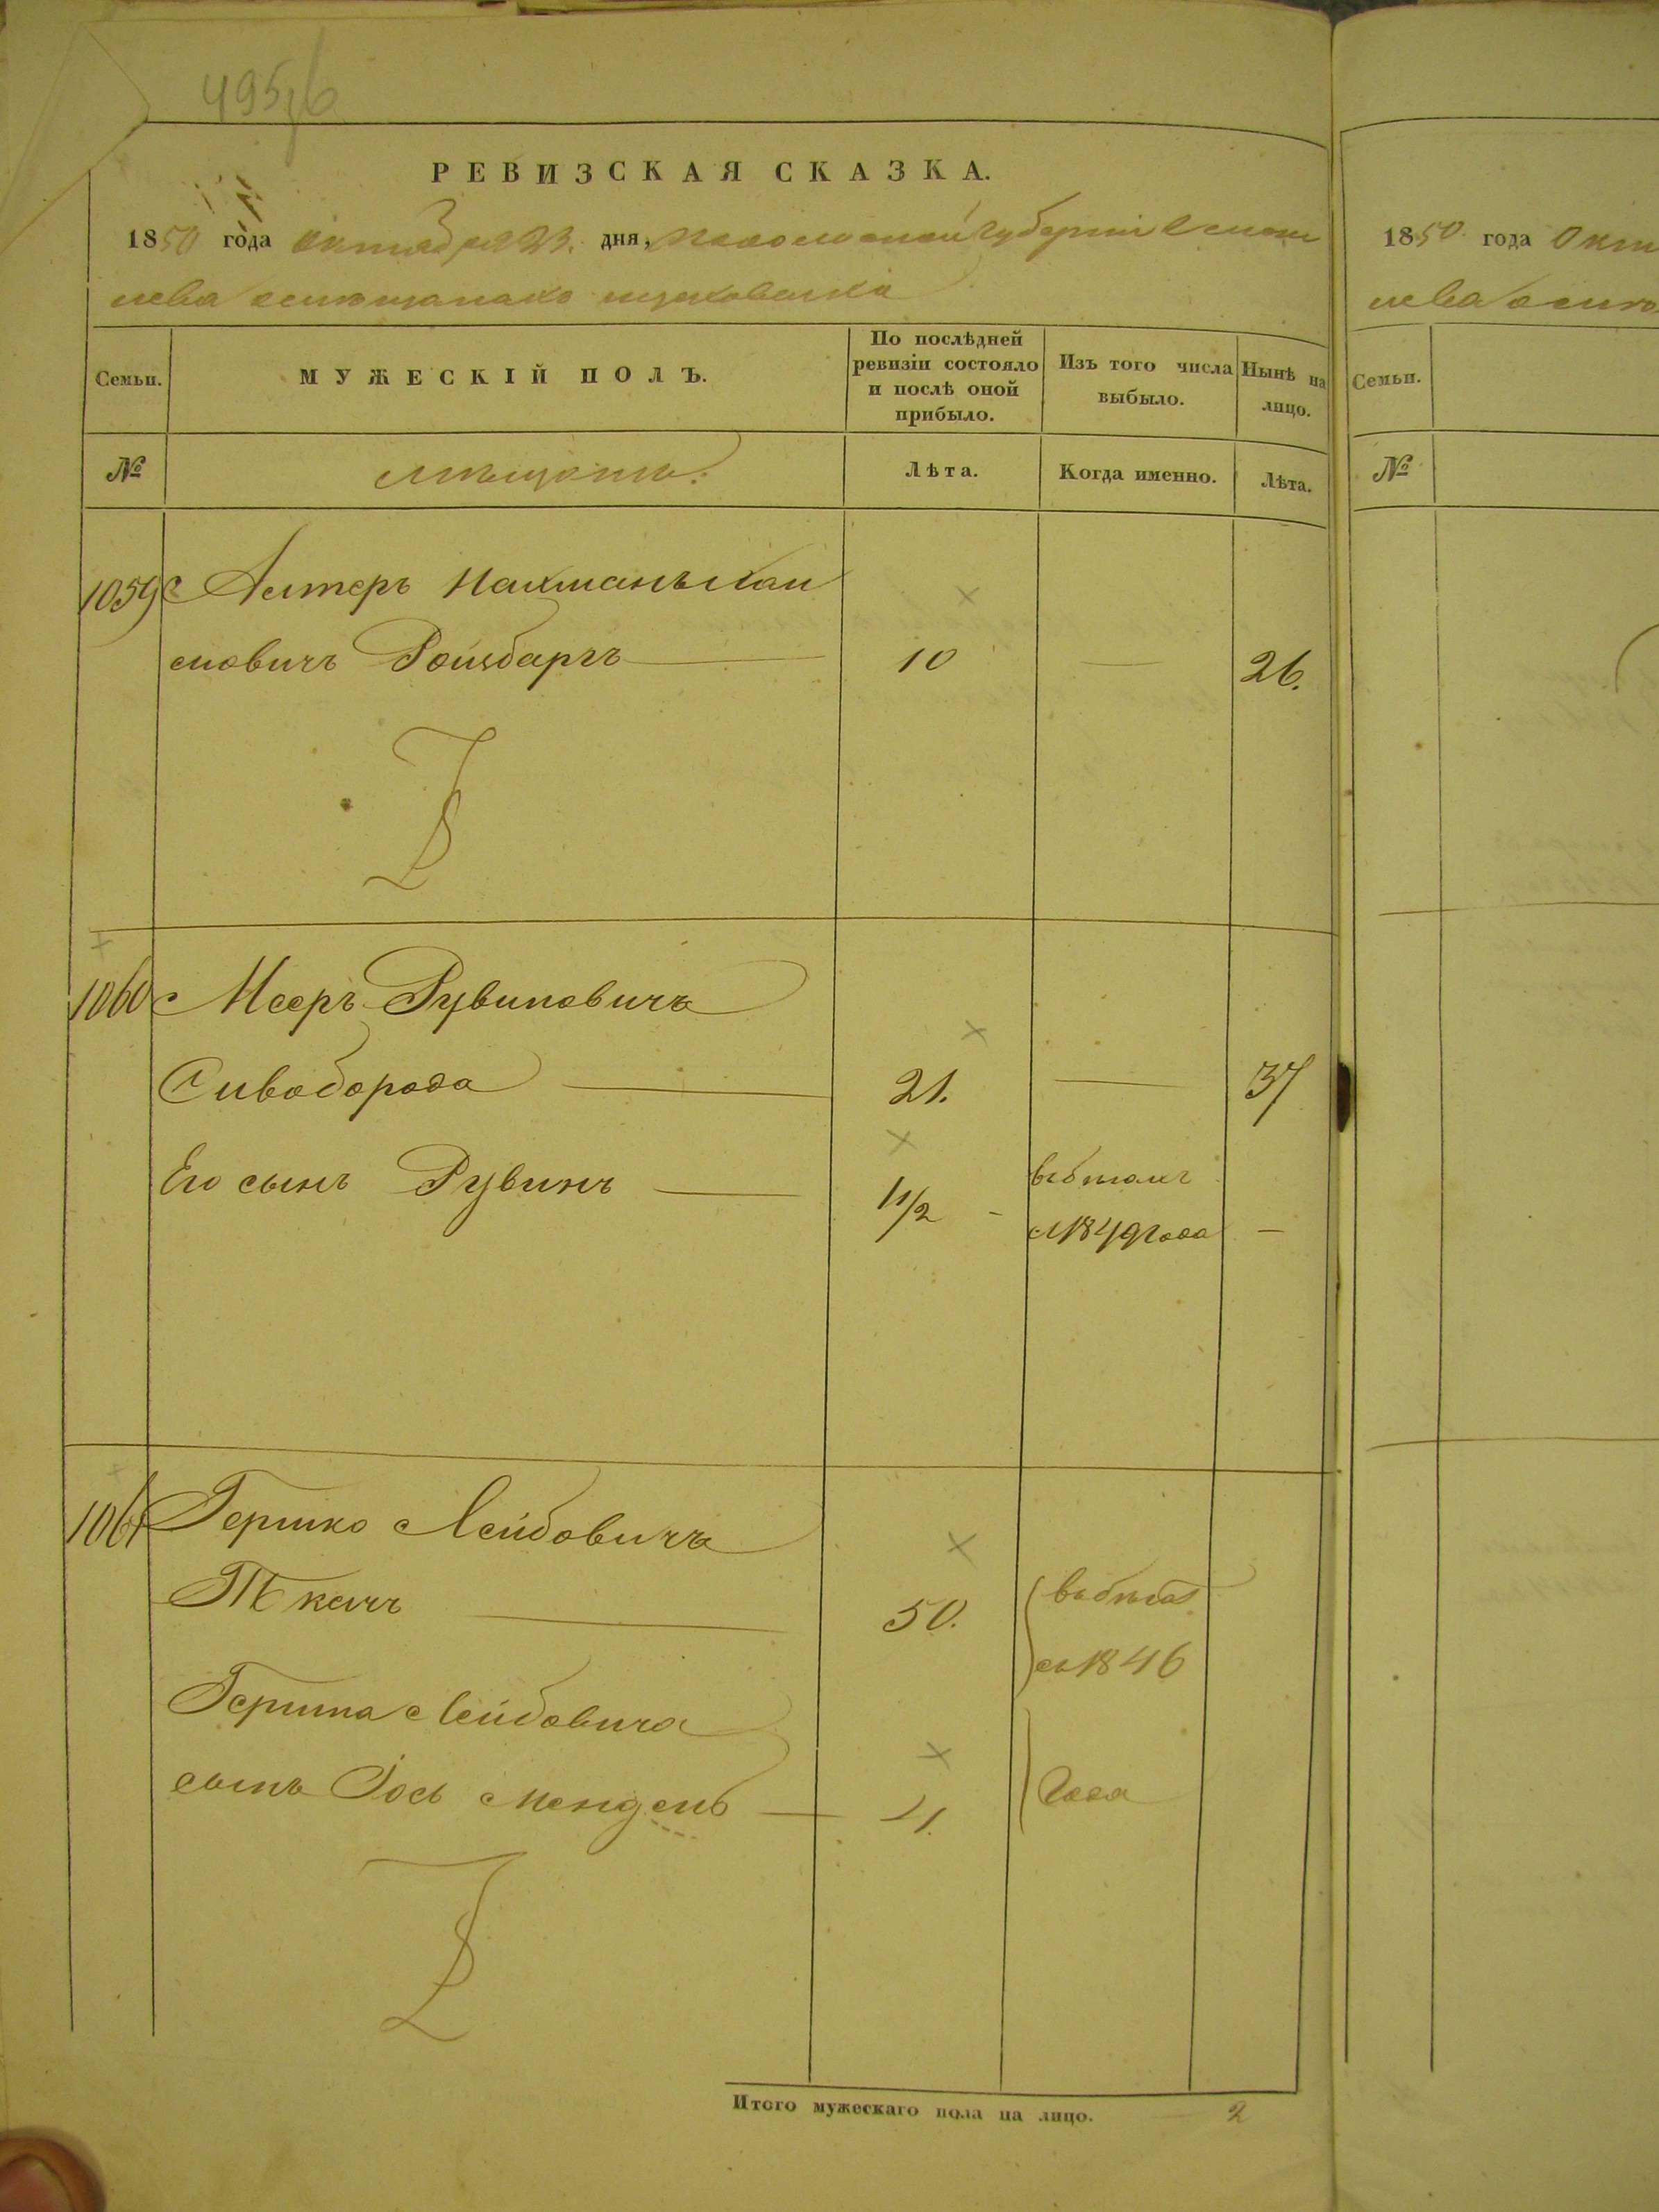 495,6
РЕВИЗСКАЯ СКАЗКА.
1850 года октября 23. дня, губерніи
1850 года Окт
Семьи.
МУЖЕСКІЙ ПОЛЪ.
По послѣдней ревизіи состояло и послѣ оной прибыло.
Изъ того числа выбыло.
Нынѣ на лицо.
Семьи.
№
Лѣта.
Когда именно.
Лѣта.
№
1059 Алтеръ Нахманъ Хаи
мовичъ Ройзбаргъ 10 26.
1060 Мееръ Рувиновичъ
Сивоборода 21. 37
Его сынъ Рувинъ 11/2
1849 года
1061 Гершко Лейбовичъ
Ткачъ 50.
1846
Гершка Лейбовича
сынъ Іось Мендель
года
Итого мужескаго пола на лицо. 2